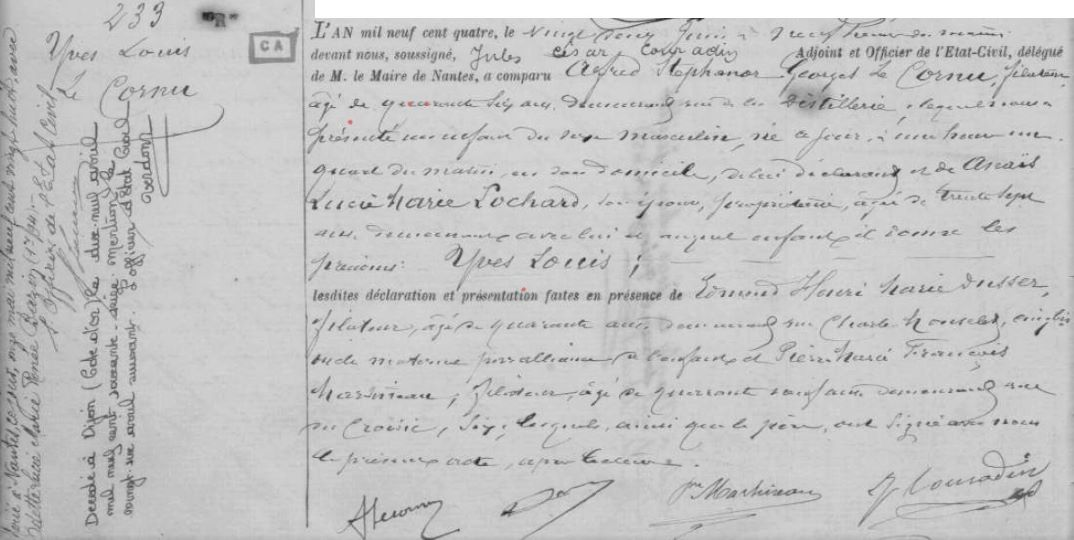 233
"R"
CA
Yves Louis
Le Cornu
L'AN mil neuf cent quatre, le Vingt deux Juin à neuf heures du matin
devant nous, soussigné, Jules César Couradin Adjoint et Officier de l'Etat-Civil, délégué
de M. le Maire de Nantes, a comparu Alfred Stephanor Georges Le Cornu, filateur
âgé de quarante six ans, demeurant rue de la Distillerie, lequel nous a
présenté un enfant du sexe masculin, né ce jour, à une heure un
quart du matin, en son domicile, de lui déclarant et de Anaïs
Lucie Marie Lochard, son épouse, propriétaire, âgée de trente sept
ans, demeurant avec lui et auquel enfant il donne les
prénoms: Yves Louis;
lesdites déclaration et présentation faites en présence de Edmond Henri Marie Dusser,
filateur, âgé de quarante ans demeurant rue Charles Monselet,
oncle maternel par alliance de l'enfant et Pierre Marie François
Massineau, filateur, âgé de quarante neuf ans demeurant rue
du Croisic, Six; lesquels, ainsi que le père, ont signé avec nous
le présent acte, après lecture.
ALecornu
J. Couradin
Décédé à Dijon (Côte d'Or) le dix-neuf avril
mil neuf cent soixante- mention le
vingt-six avril suivant. L'officier d'Etat Civil
Verdon
Marié à Nantes, ce jour, onze mai mil neuf cent vingt huit avec
Marie Renée
L'Officier de l'Etat Civil